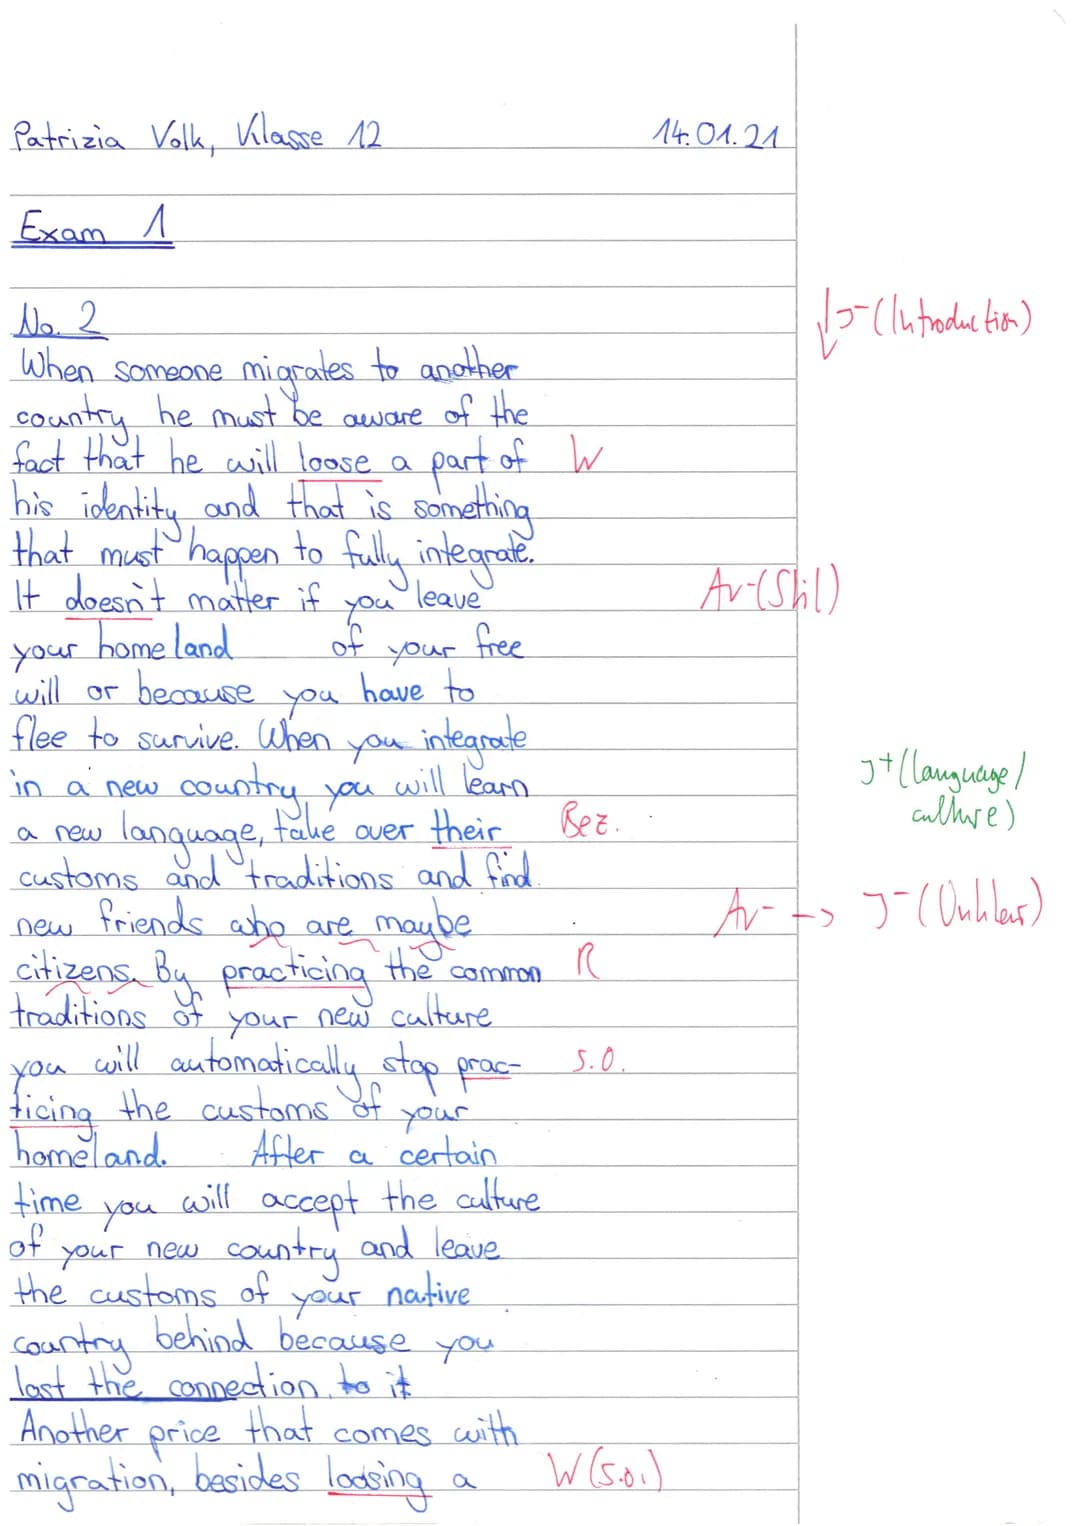 Patrizia Volk, Klasse 12 14.01.21
Exam 1
No. 2
J- (Introduction)
When someone migrates to another
country he must be aware of the
fact that he will loose a part of W
his identity and that is something
that must happen to fully integrate.
It doesn't matter if you leave Av-(Stil)
your homeland of your free
will or because you have to
flee to survive. When you integrate
in a new country you will learn J+ (language/
culture)
a new language, take over their Bez.
customs and traditions and find
new friends who are maybe Av- --> J- (Unklar)
citizens. By practicing the common R
traditions of your new culture
you will automatically stop prac- s.o.
ticing the customs of your
homeland. After a certain
time you will accept the culture
of your new country and leave
the customs of your native
country behind because you
lost the connection to it
Another price that comes with
migration, besides loosing a W (s.o.)